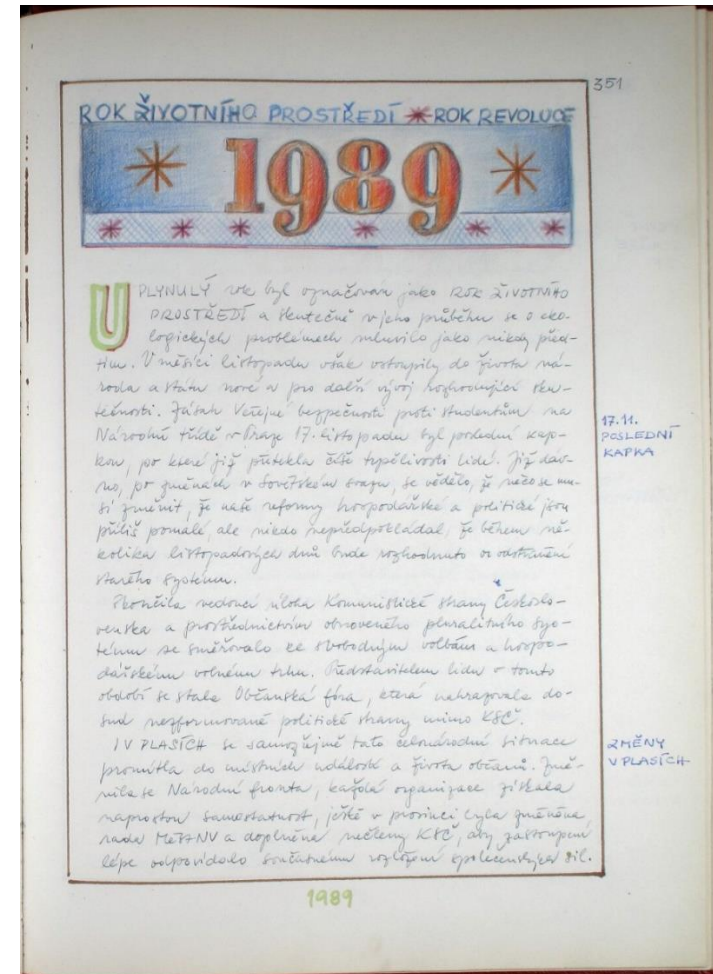 351
ROK ŽIVOTNÍHO PROSTŘEDÍ * ROK REVOLUCE
1989
UPLYNULÝ rok byl označován jako ROK ŽIVOTNÍHO
PROSTŘEDÍ a skutečně v jeho průběhu se o eko-
logických problémech mluvilo jako nikdy před-
tím. V měsíci listopadu však vstoupily do života ná-
roda a státu nové a pro další vývoj rozhodující sku-
tečnosti. Zásah Veřejné bezpečnosti proti studentům na
Národní třídě v Praze 17. listopadu byl poslední kap-
kou, po které již přetekla číše trpělivosti lidí. Již dáv-
no, po změnách v Sovětském svazu, se vědělo, že něco se mu-
sí změnit, že naše reformy hospodářské a politické jsou
příliš pomalé, ale nikdo nepředpokládal, že během ně-
kolika listopadových dnů bude rozhodnuto o odstranění
starého systému.
17.11.
POSLEDNÍ
KAPKA
Skončila vedoucí úloha Komunistické strany Českoslo-
venska a prostřednictvím obnoveného pluralitního sys-
tému se směřovalo ke svobodným volbám a hospo-
dářskému volnému trhu. Představitelem lidu v tomto
období se stala Občanská fóra, která nahrazovala do-
sud nezformované politické strany mimo KSČ.
I V PLASÍCH se samozřejmě tato celonárodní situace
promítla do místních událostí a života občanů. Změ-
nila se Národní fronta, každá organizace získala
naprostou samostatnost, ještě v prosinci byla změněna
rada MěstNV a doplněna nečleny KSČ, aby zastoupení
lépe odpovídalo současnému rozložení společenských sil.
ZMĚNY
V PLASÍCH
1989